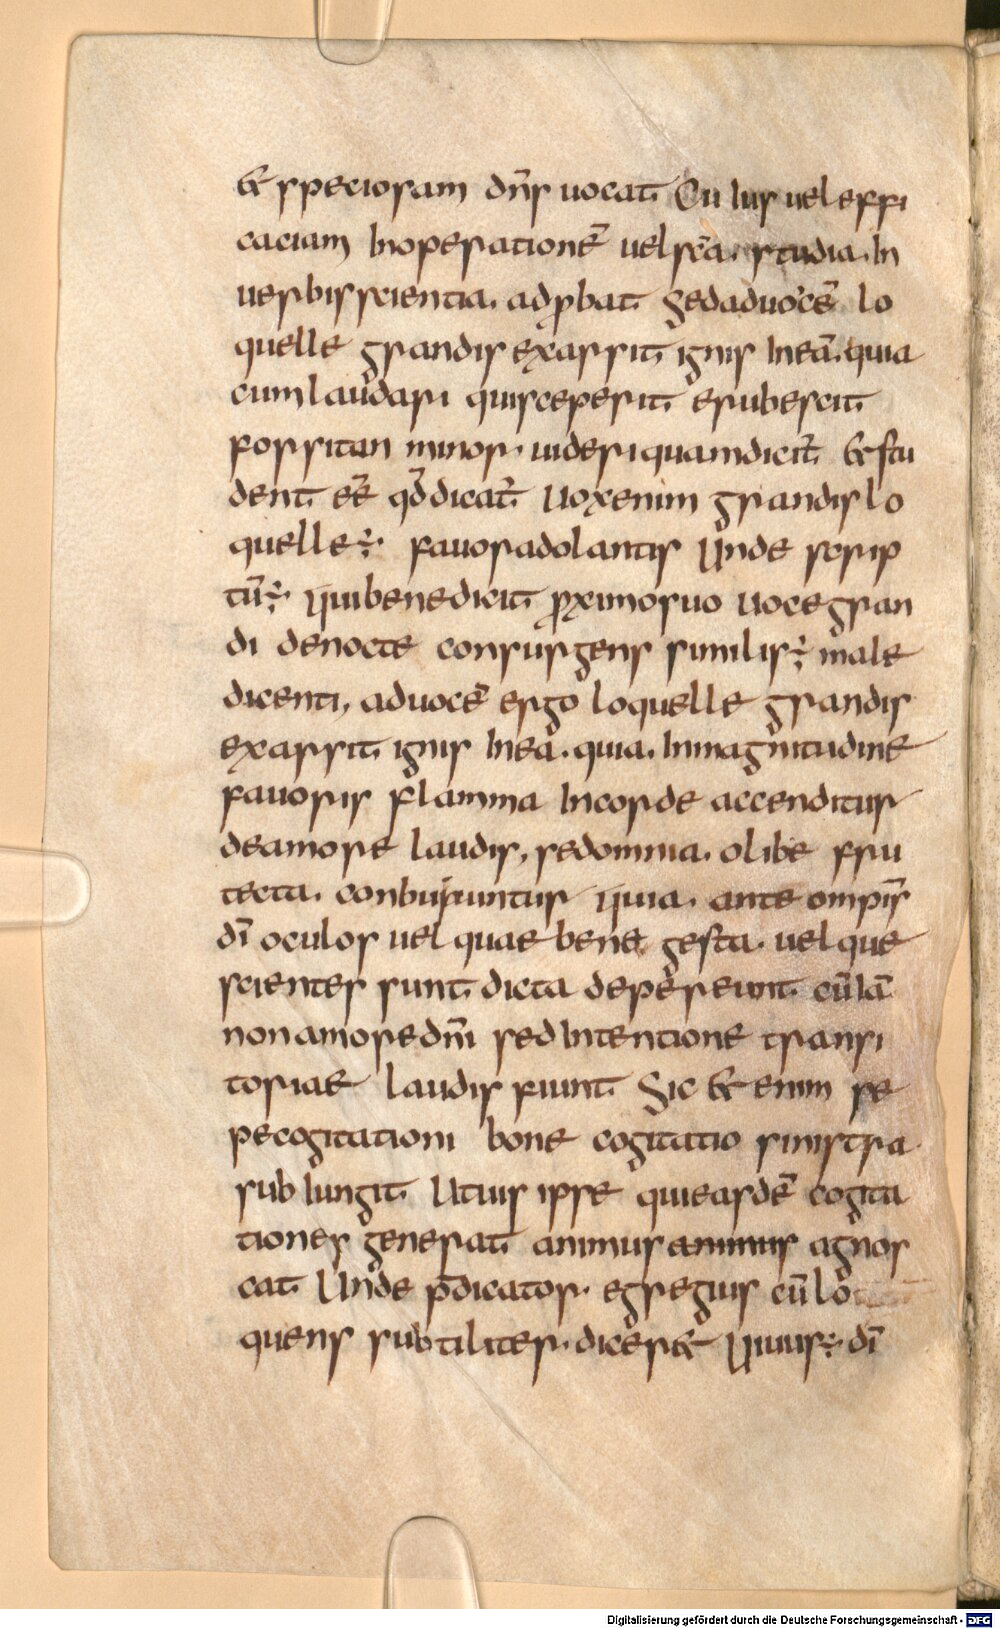 & speciosam dn̄s uocat Cu ius uel effi
caciam Inoperationē uel sc̄a. studia. In
uerbis scientia. adprobat Sedaduocē lo
quelle grandis exarsit ignis Ineā. quia
cum laudari quisceperit erubescit
forsitan minor. uideri quamdicit̄ & stu
dent eē qd̄dicat̄ Uoxenim grandis lo
quelle÷ fauoradolantis Unde scrip
tū÷ Quibenedicit proximosuo uocegran
di denocte consurgens similis÷ male
dicenti, aduocē ergo loquelle grandis
exarsit ignis Ineā. quia. Inmagnitudine
fauoris flamma Incorde accenditur
deamore laudis, sedomnia. olibe fru
tecta. conburuntur Quia. ante omp̄is
dī oculos uel quae bene gesta. uel que
scienter sunt dicta depereunt cū iā
nonamore dn̄i sed Intentione transi
toriae laudis fiunt Sic & enim se
pecogitationi bone cogitatio sinistra
sub Iungit Utuis ipse quieasdē cogita
tiones generat animus animus agnos
cat Unde p̄dicator. egregius cū lo
quens subtiliter. dicer& Uiuus÷ dī
Digitalisierung gefördert durch die Deutsche Forschungsgemeinschaft - DFG